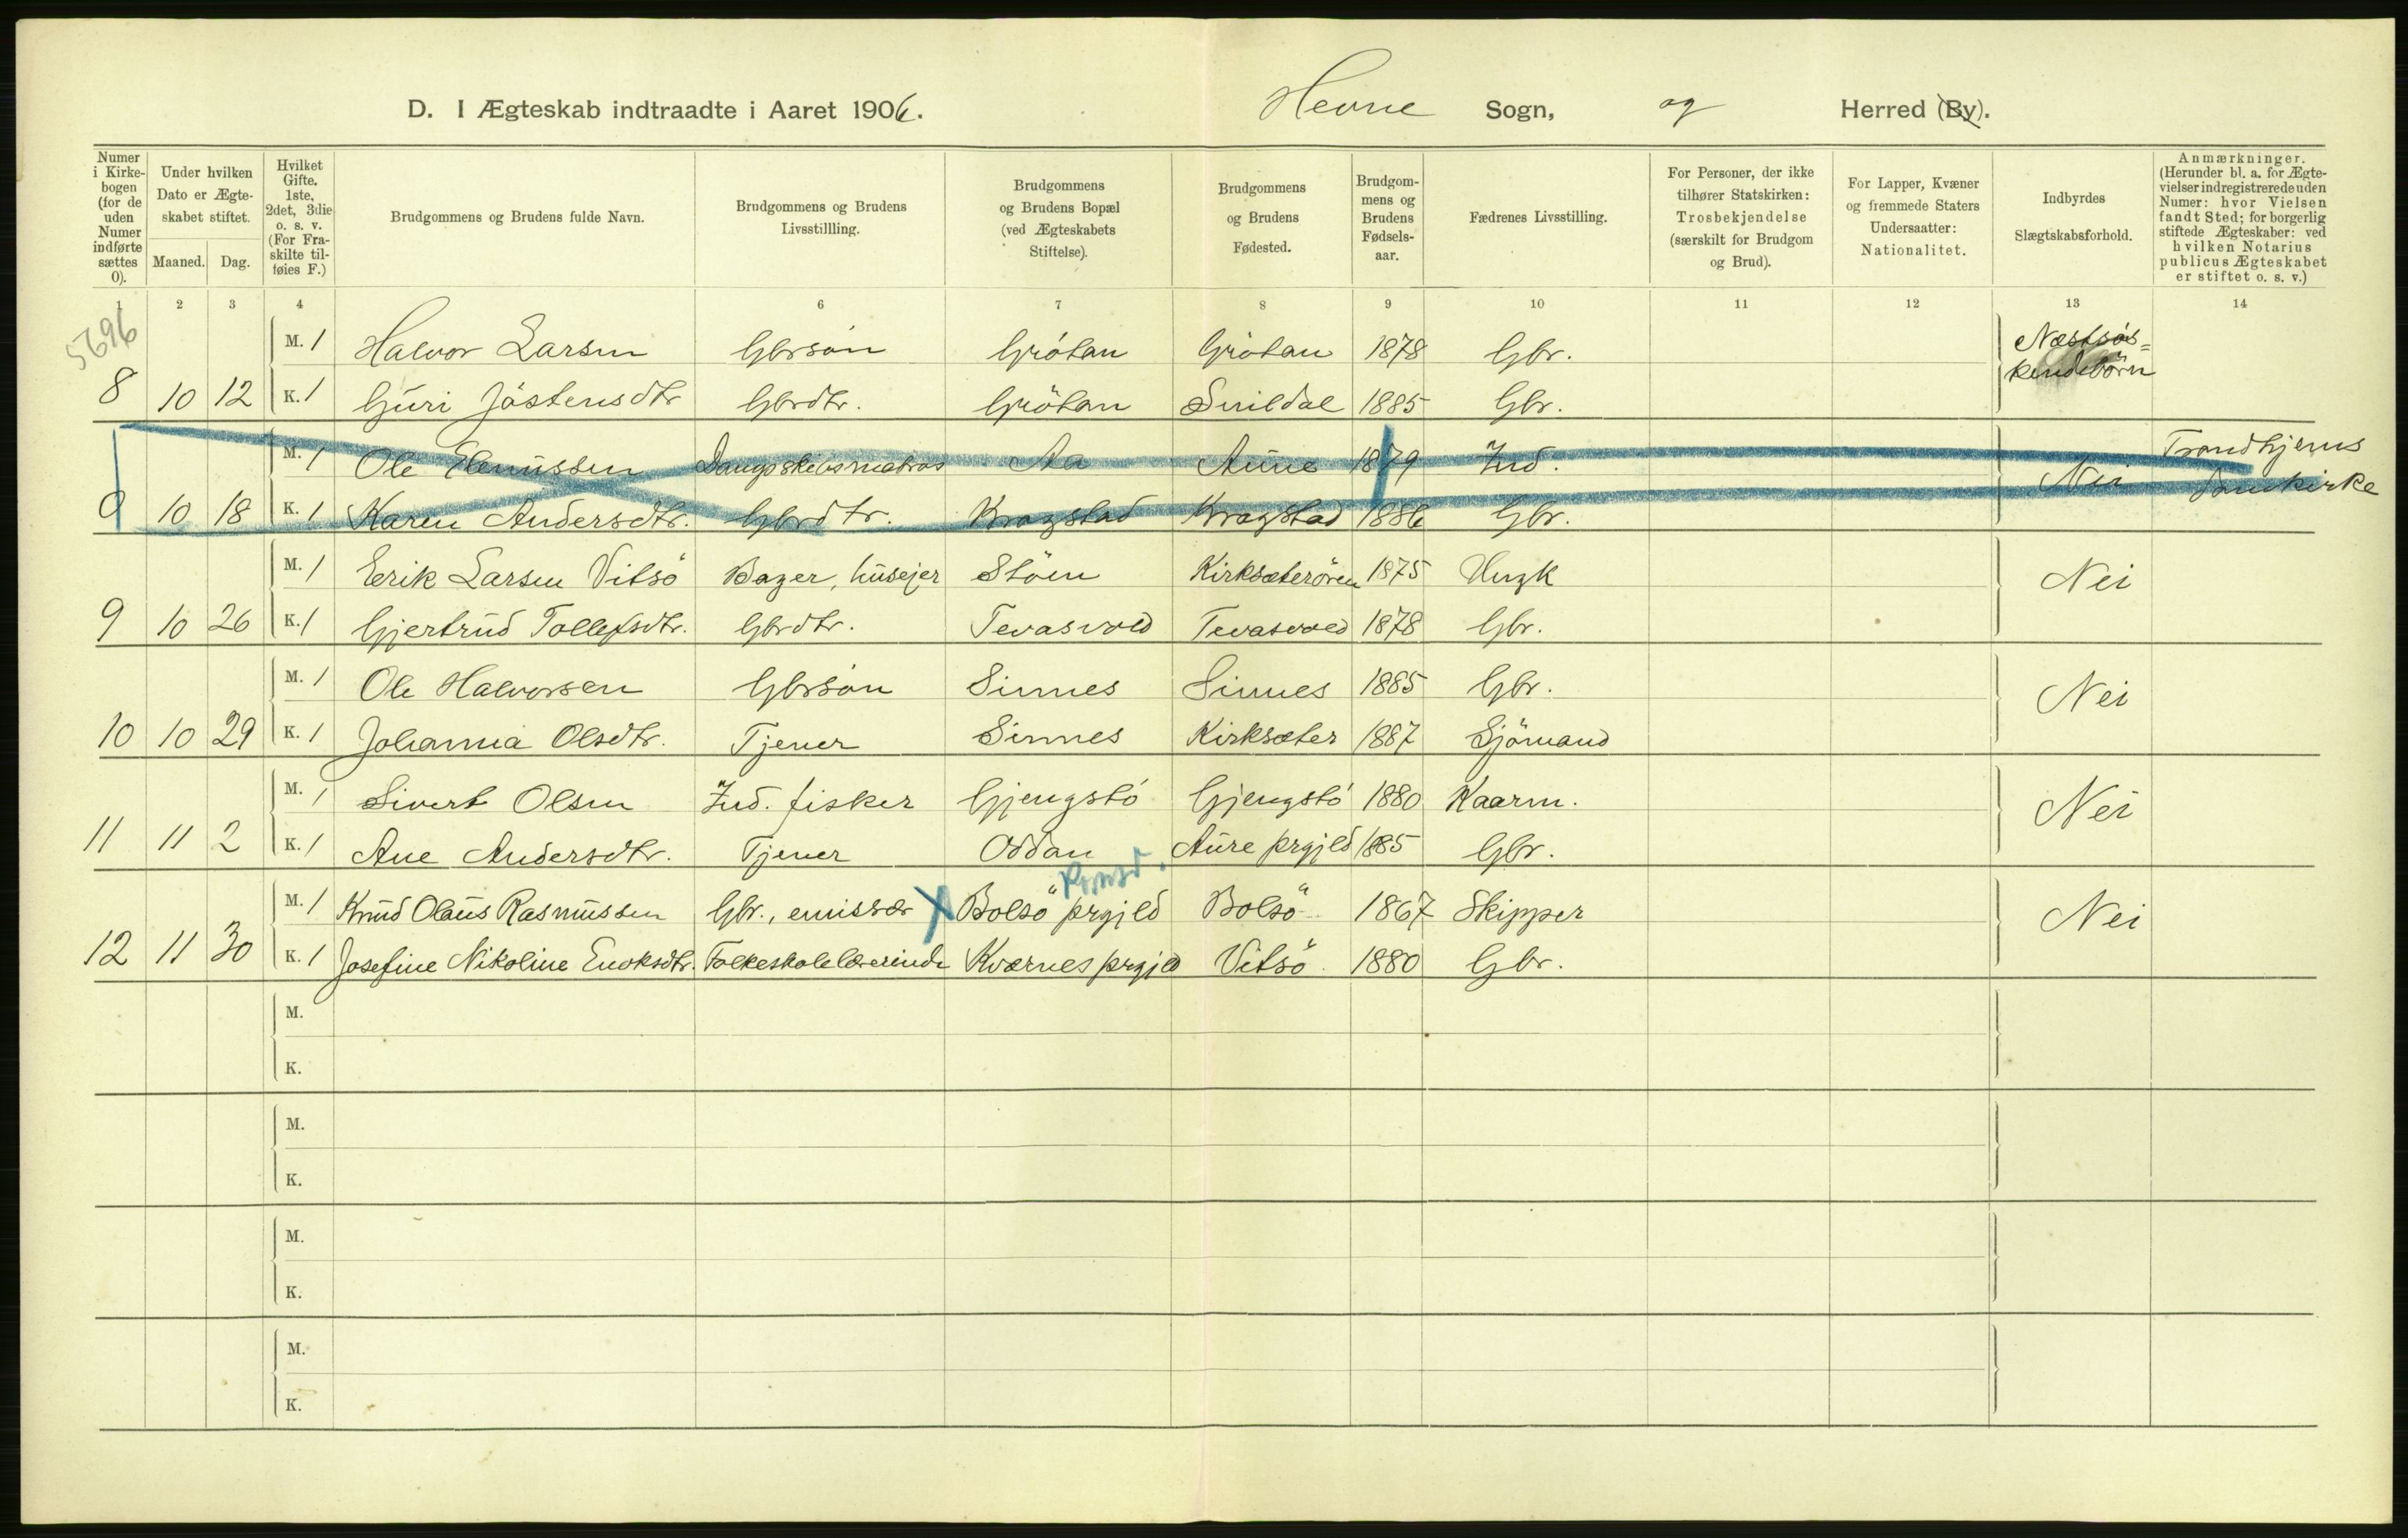 D. I Ægteskab indtraadte i Aaret 1906. Hevne Sogn, og Herred (By).
Numer i Kirkebogen (for de uden Numer indførte sættes 0). Under hvilken Dato er Ægteskabet stiftet. Maaned. Dag. Hvilket Gifte. 1ste, 2det, 3die o. s. v. (For Fraskilte tilføies F.) Brudgommens og Brudens fulde Navn. Brudgommens og Brudens Livsstillling. Brudgommens og Brudens Bopæl (ved Ægteskabets Stiftelse). Brudgommens og Brudens Fødested. Brudgommens og Brudens Fødselsaar. Fædrenes Livsstilling. For Personer, der ikke tilhører Statskirken: Trosbekjendelse (særskilt for Brudgom og Brud). For Lapper, Kvæner og fremmede Staters Undersaatter: Nationalitet. Indbyrdes Slægtskabsforhold. Anmærkninger. (Herunder bl. a. for Ægtevielser indregistrerede uden Numer: hvor Vielsen fandt Sted; for borgerlig stiftede Ægteskaber: ved hvilken Notarius publicus Ægteskabet er stiftet o. s. v.)
1 2 3 4 6 7 8 9 10 11 12 13 14
5696
M. 1 Halvor Larsen Gbrsön Grötan Grötan 1878 Gbr. Næstsøs-
kendebörn
8 10 12 K. 1 Guri Jöstensdtr Gbrdtr. Grötan Snildal 1885 Gbr.
M. 1 Ole Elenussen Dampskibsmatros Aa Aune 1879 Ind. Trondhjems
0 10 18 K. 1 Karen Andersdtr. Gbrdtr. Krogstad Krogstad 1886 Gbr. Nei Domkirke
M. 1 Erik Larsen Vitsö Bager, husejer Stöen Kirksæterören 1875 Nei
9 10 26 K. 1 Gjertrud Tollefsdtr. Gbrdtr. Tevasvold Tevasvold 1878 Gbr.
M. 1 Ole Halvorsen Gbrsön Sinnes Sinnes 1885 Gbr. Nei
10 10 29 K. 1 Johanna Olsdtr. Tjener Sinnes Kirksæter 1887 Sjömand
M. 1 Sivert Olsen Ind. fisker Gjengstö Gjengstö 1880 Kaarm. Nei
11 11 2 K. 1 Ane Andersdtr. Tjener Oddan Aure prgjld 1885 Gbr.
M. 1 Knud Olaus Rasmussen Gbr., emissær X Bolsö prgjld Bolsö 1867 Skipper Nei
12 11 30 K. 1 Josefine Nikoline Enoksdtr. Folkeskolelærerinde Kværnes prgjld Vitsö 1880 Gbr.
M.
K.
M.
K.
M.
K.
M.
K.